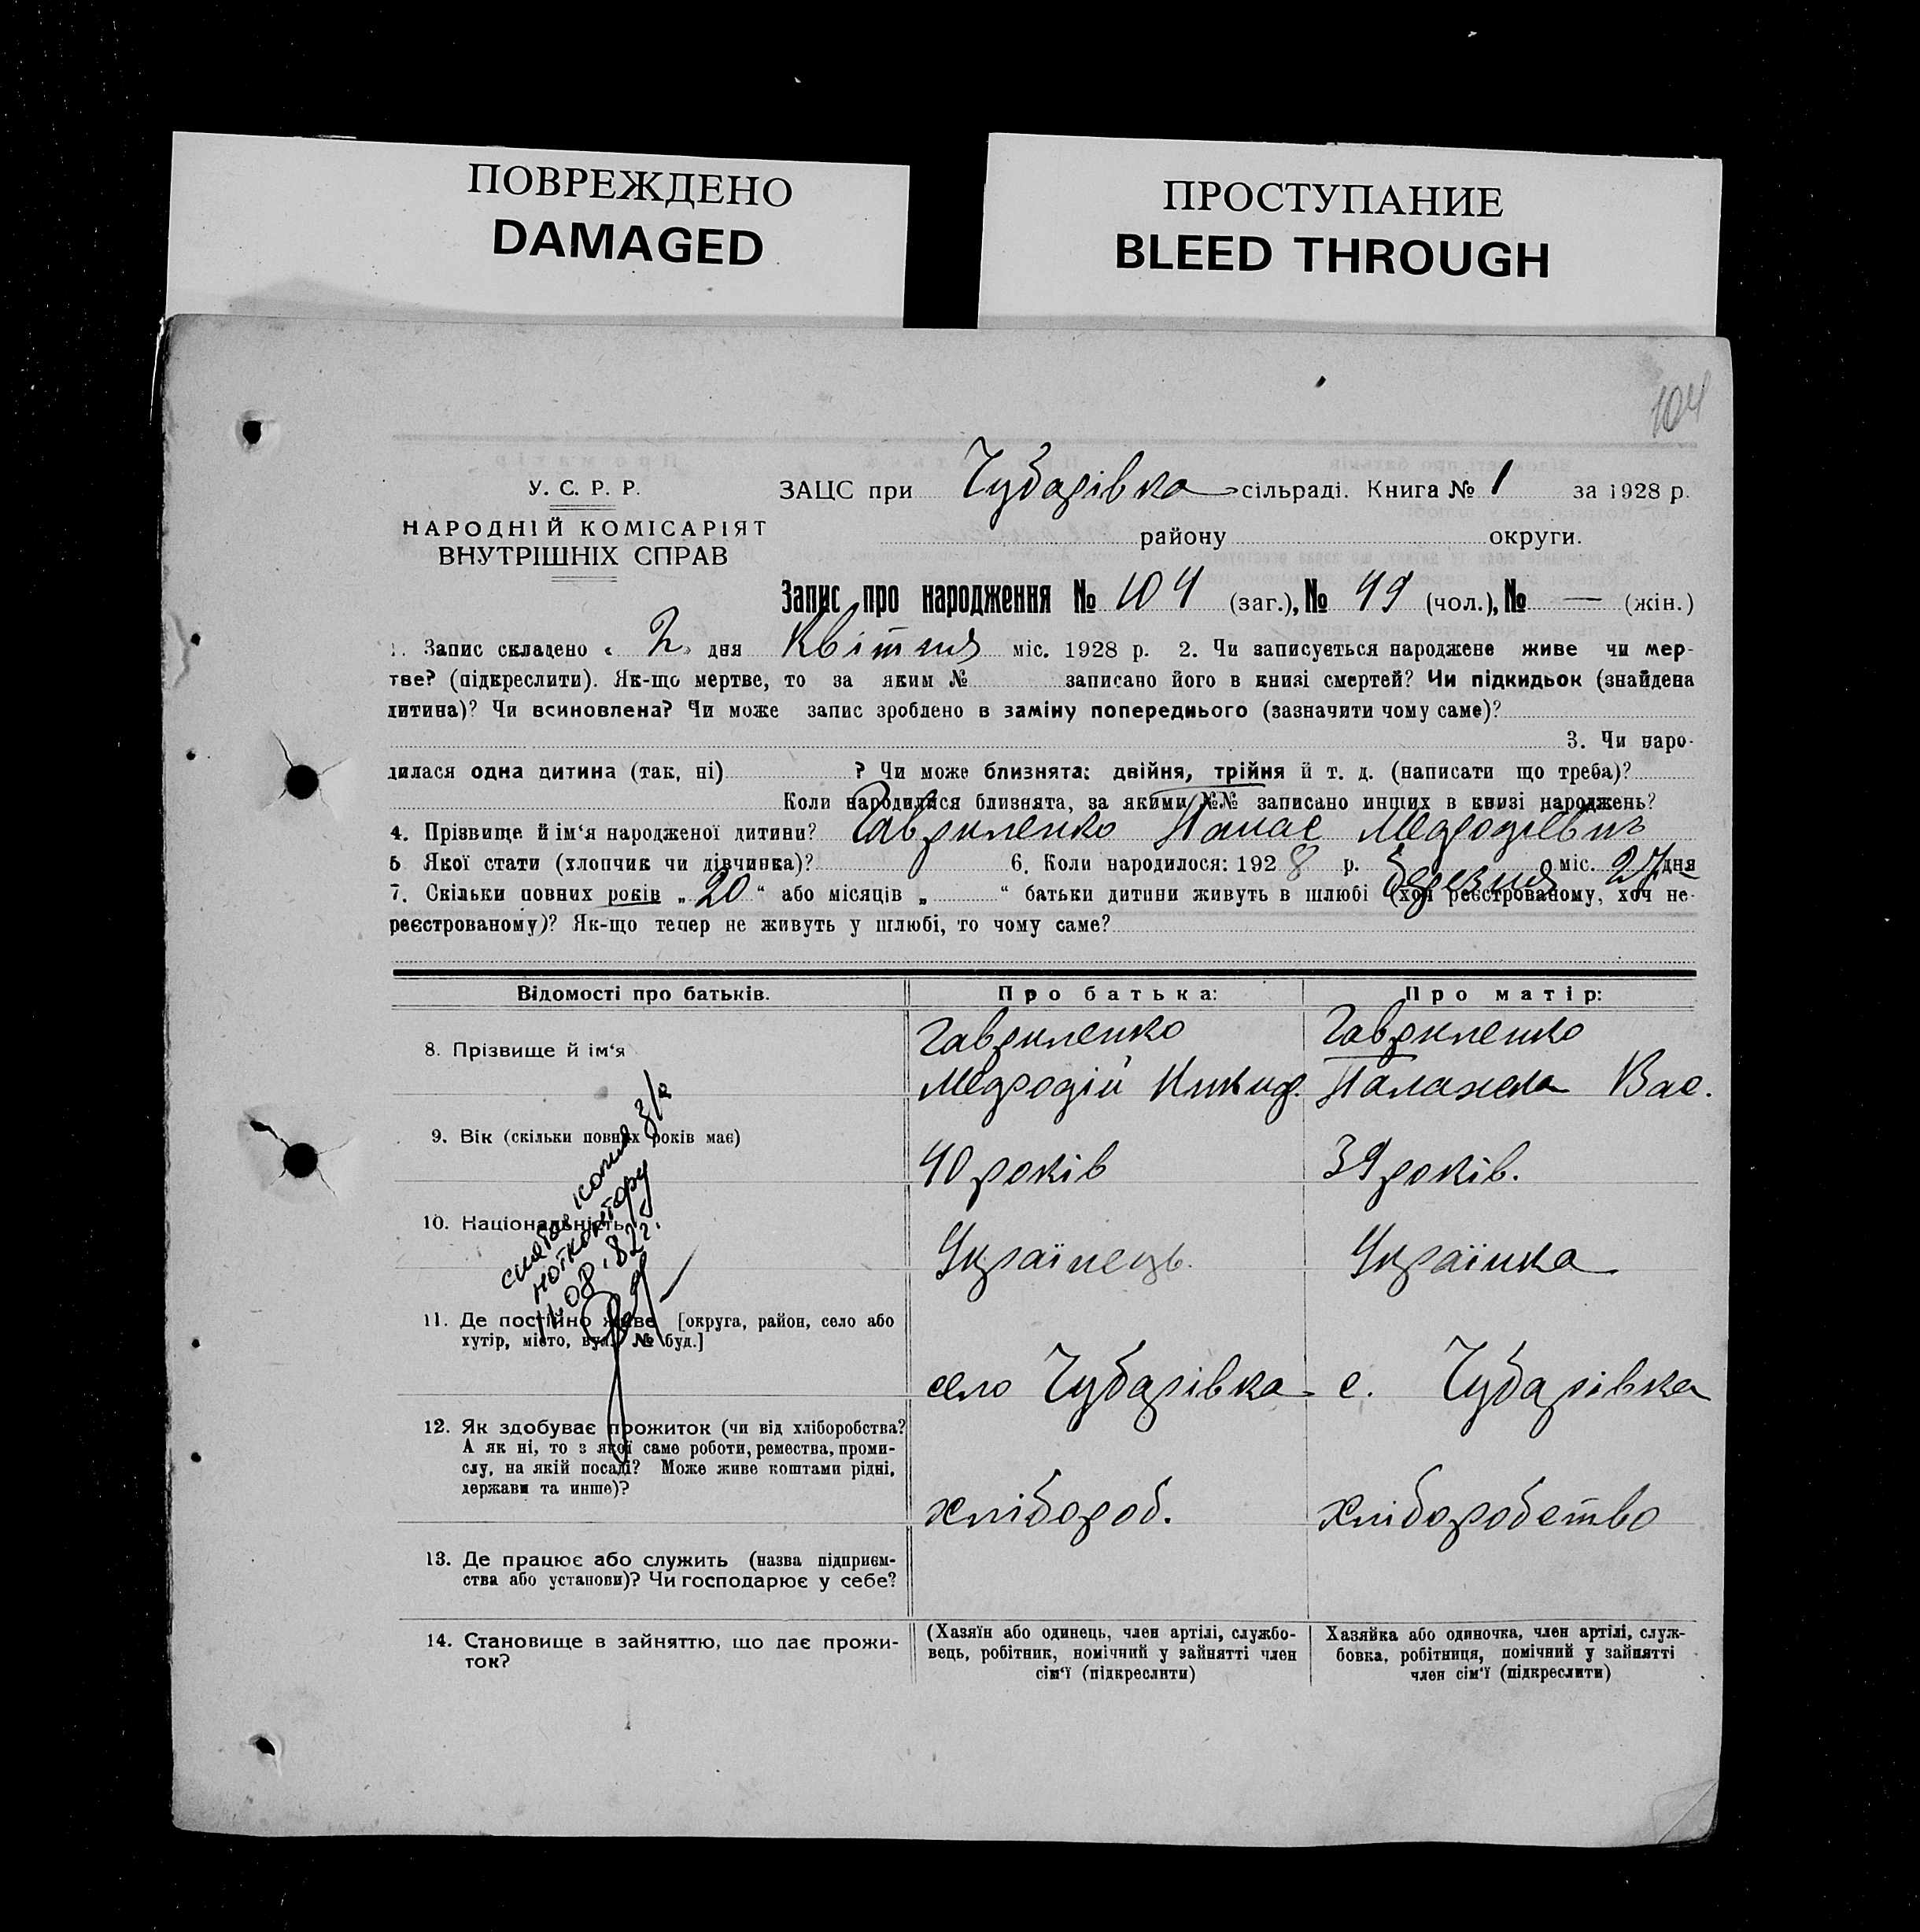 ПОВРЕЖДЕНО
DAMAGED
ПРОСТУПАНИЕ
BLEED THROUGH
104
У. С. Р. Р.
НАРОДНІЙ КОМІСАРІЯТ
ВНУТРІШНІХ СПРАВ
ЗАЦС при Чубарівка сільраді. Книга № 1 за 1928 р.
району округи.
Запис про народження № 104 (заг.), № 49 (чол.), № — (жін.)
1. Запис складено „ 2 „ дня Квітня міс. 1928 р. 2. Чи записується народжене живе чи мер-
тве? (підкреслити). Як-що мертве, то за яким № записано його в книзі смертей? Чи підкидьок (знайдена
дитина)? Чи всиновлена? Чи може запис зроблено в заміну попереднього (зазначити чому саме)?
3. Чи наро-
дилася одна дитина (так, ні) ? Чи може близнята: двійня, трійня й т. д. (написати що треба)?
Коли народилися близнята, за якими №№ записано инших в книзі народжень?
4. Прізвище й ім'я народженої дитини? Гавриленко Панас Медфодієвич
5 Якої стати (хлопчик чи дівчинка)? 6. Коли народилося: 1928 р. березня міс. 27 дня
7. Скільки повних років „ 20 “ або місяців „ “ батьки дитини живуть в шлюбі (хоч реєстрованому, хоч не-
реєстрованому)? Як-що тепер не живуть у шлюбі, то чому саме?
Відомості про батьків. Про батька: Про матір:
8. Прізвище й ім'я Гавриленко Медфодій Никиф. Гавриленко Палажка Вас.
9. Вік (скільки повних років має) 40 років 39 років.
10. Національність Українець. Українка
11. Де постійно живе [округа, район, село або
хутір, місто, вул. № буд.] село Чубарівка с. Чубарівка
12. Як здобуває прожиток (чи від хліборобства?
А як ні, то з якої саме роботи, ремества, проми-
слу, на якій посаді? Може живе коштами рідні,
держави та инше)? хлібороб. Хліборобство
13. Де працює або служить (назва підприєм-
ства або установи)? Чи господарює у себе?
14. Становище в зайняттю, що дає прожи-
ток?
(Хазяїн або одинець, член артілі, службо-
вець, робітник, помічний у зайнятті член
сім'ї (підкреслити)
Хазяйка або одиночка, член артілі, служ-
бовка, робітниця, помічний у зайнятті
член сім'ї (підкреслити)
снята копия
нотконтору
11.08.82г.